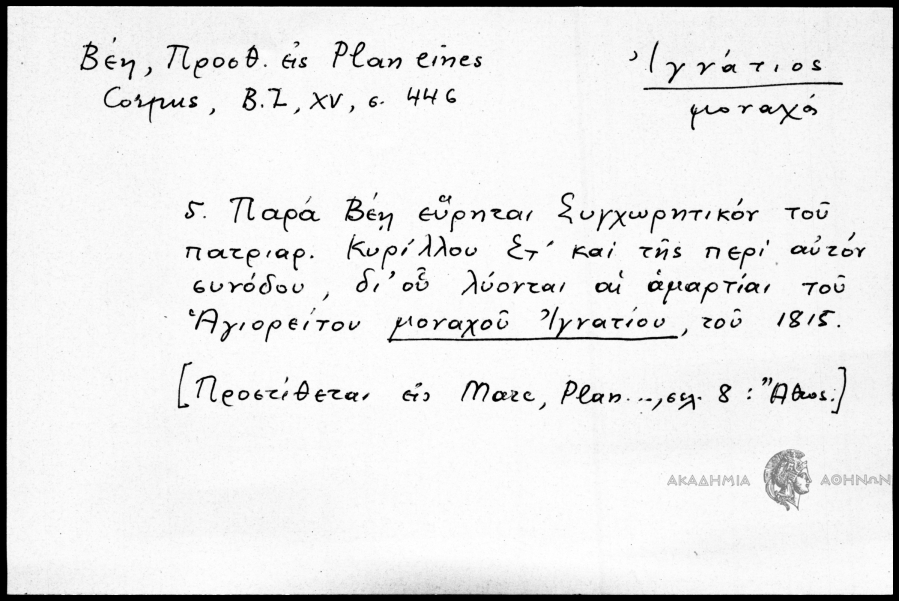 Βέη, Προσθ. εἰς Plan eines
Corpus, B.Z, XV, σ. 446
Ἰγνάτιος
μοναχό
5. Παρά Βέῃ εὕρηται Συγχωρητικόν τοῦ
πατριαρ. Κυρίλλου ΣΤ΄ καί τῆς περί αὐτόν
συνόδου, δι' οὗ λύονται αἱ ἁμαρτίαι τοῦ
Ἁγιορείτου μοναχοῦ Ἰγνατίου, τοῦ 1815.
[Προστίθεται εἰς Marc, Plan..., σελ. 8 : Ἄθως.]
ΑΚΑΔΗΜΙΑ ΑΘΗΝΩΝ